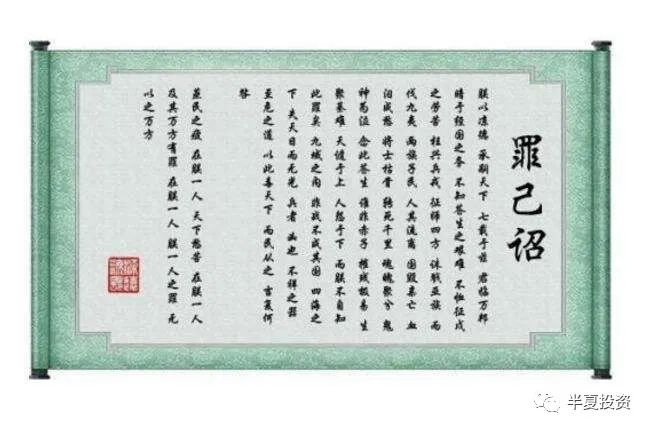 罪己诏
朕以凉德 承嗣天下 七载于兹 君临万邦
暗于经国之务 不知苍生之艰难 不恤征戍
之劳苦 枉兴兵戎 征师四方 诛戮亚族 而
伐九夷 两族子民 人其流离 国毁家亡 血
泪成愁 将士枯骨 转死千里 魂魄聚兮 鬼
神 泣 念此苍生 谁非赤子 摧残极易 生
聚甚难 天谴于上 人怨于下 而朕不自知
此罪矣 九域之内 非战不成其国 四海之
下 失天日而无光 兵者 凶也 不祥之器
至危之道 以此毒天下 而民从之 吉复何
咎
民之疲 在朕一人 天下愁苦 在朕一人
及其万方有罪 在朕一人 朕一人之罪 无
以之万方
半夏投资